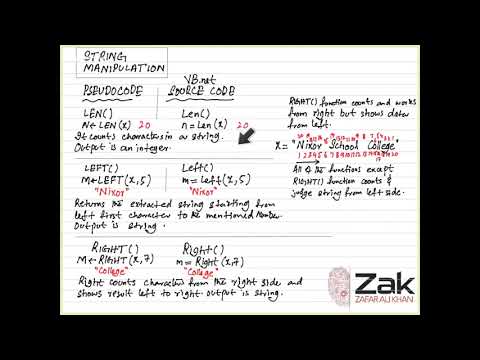 STRING
MANIPULATION
VB.net
PSEUDOCODE SOURCE CODE
LEN() Len()
N←LEN(X) 20 n=Len(x) 20
It counts characters in a string.
Output is an integer.
LEFT() Left()
M←LEFT(X,5) m=Left(x,5)
"Nixor" "Nixor"
Returns the extracted string starting from
left first character to the mentioned number.
Output is string.
RIGHT() Right()
M←RIGHT(X,7) m=Right(x,7)
"College" "College"
Right counts character from the right side and
shows result left to right. Output is string.
RIGHT() function counts and works
from right but shows data
from left.
X = "Nixor School College"
All the functions except
RIGHT() function counts &
judge string from left side.
Zak
ZAFAR ALI KHAN